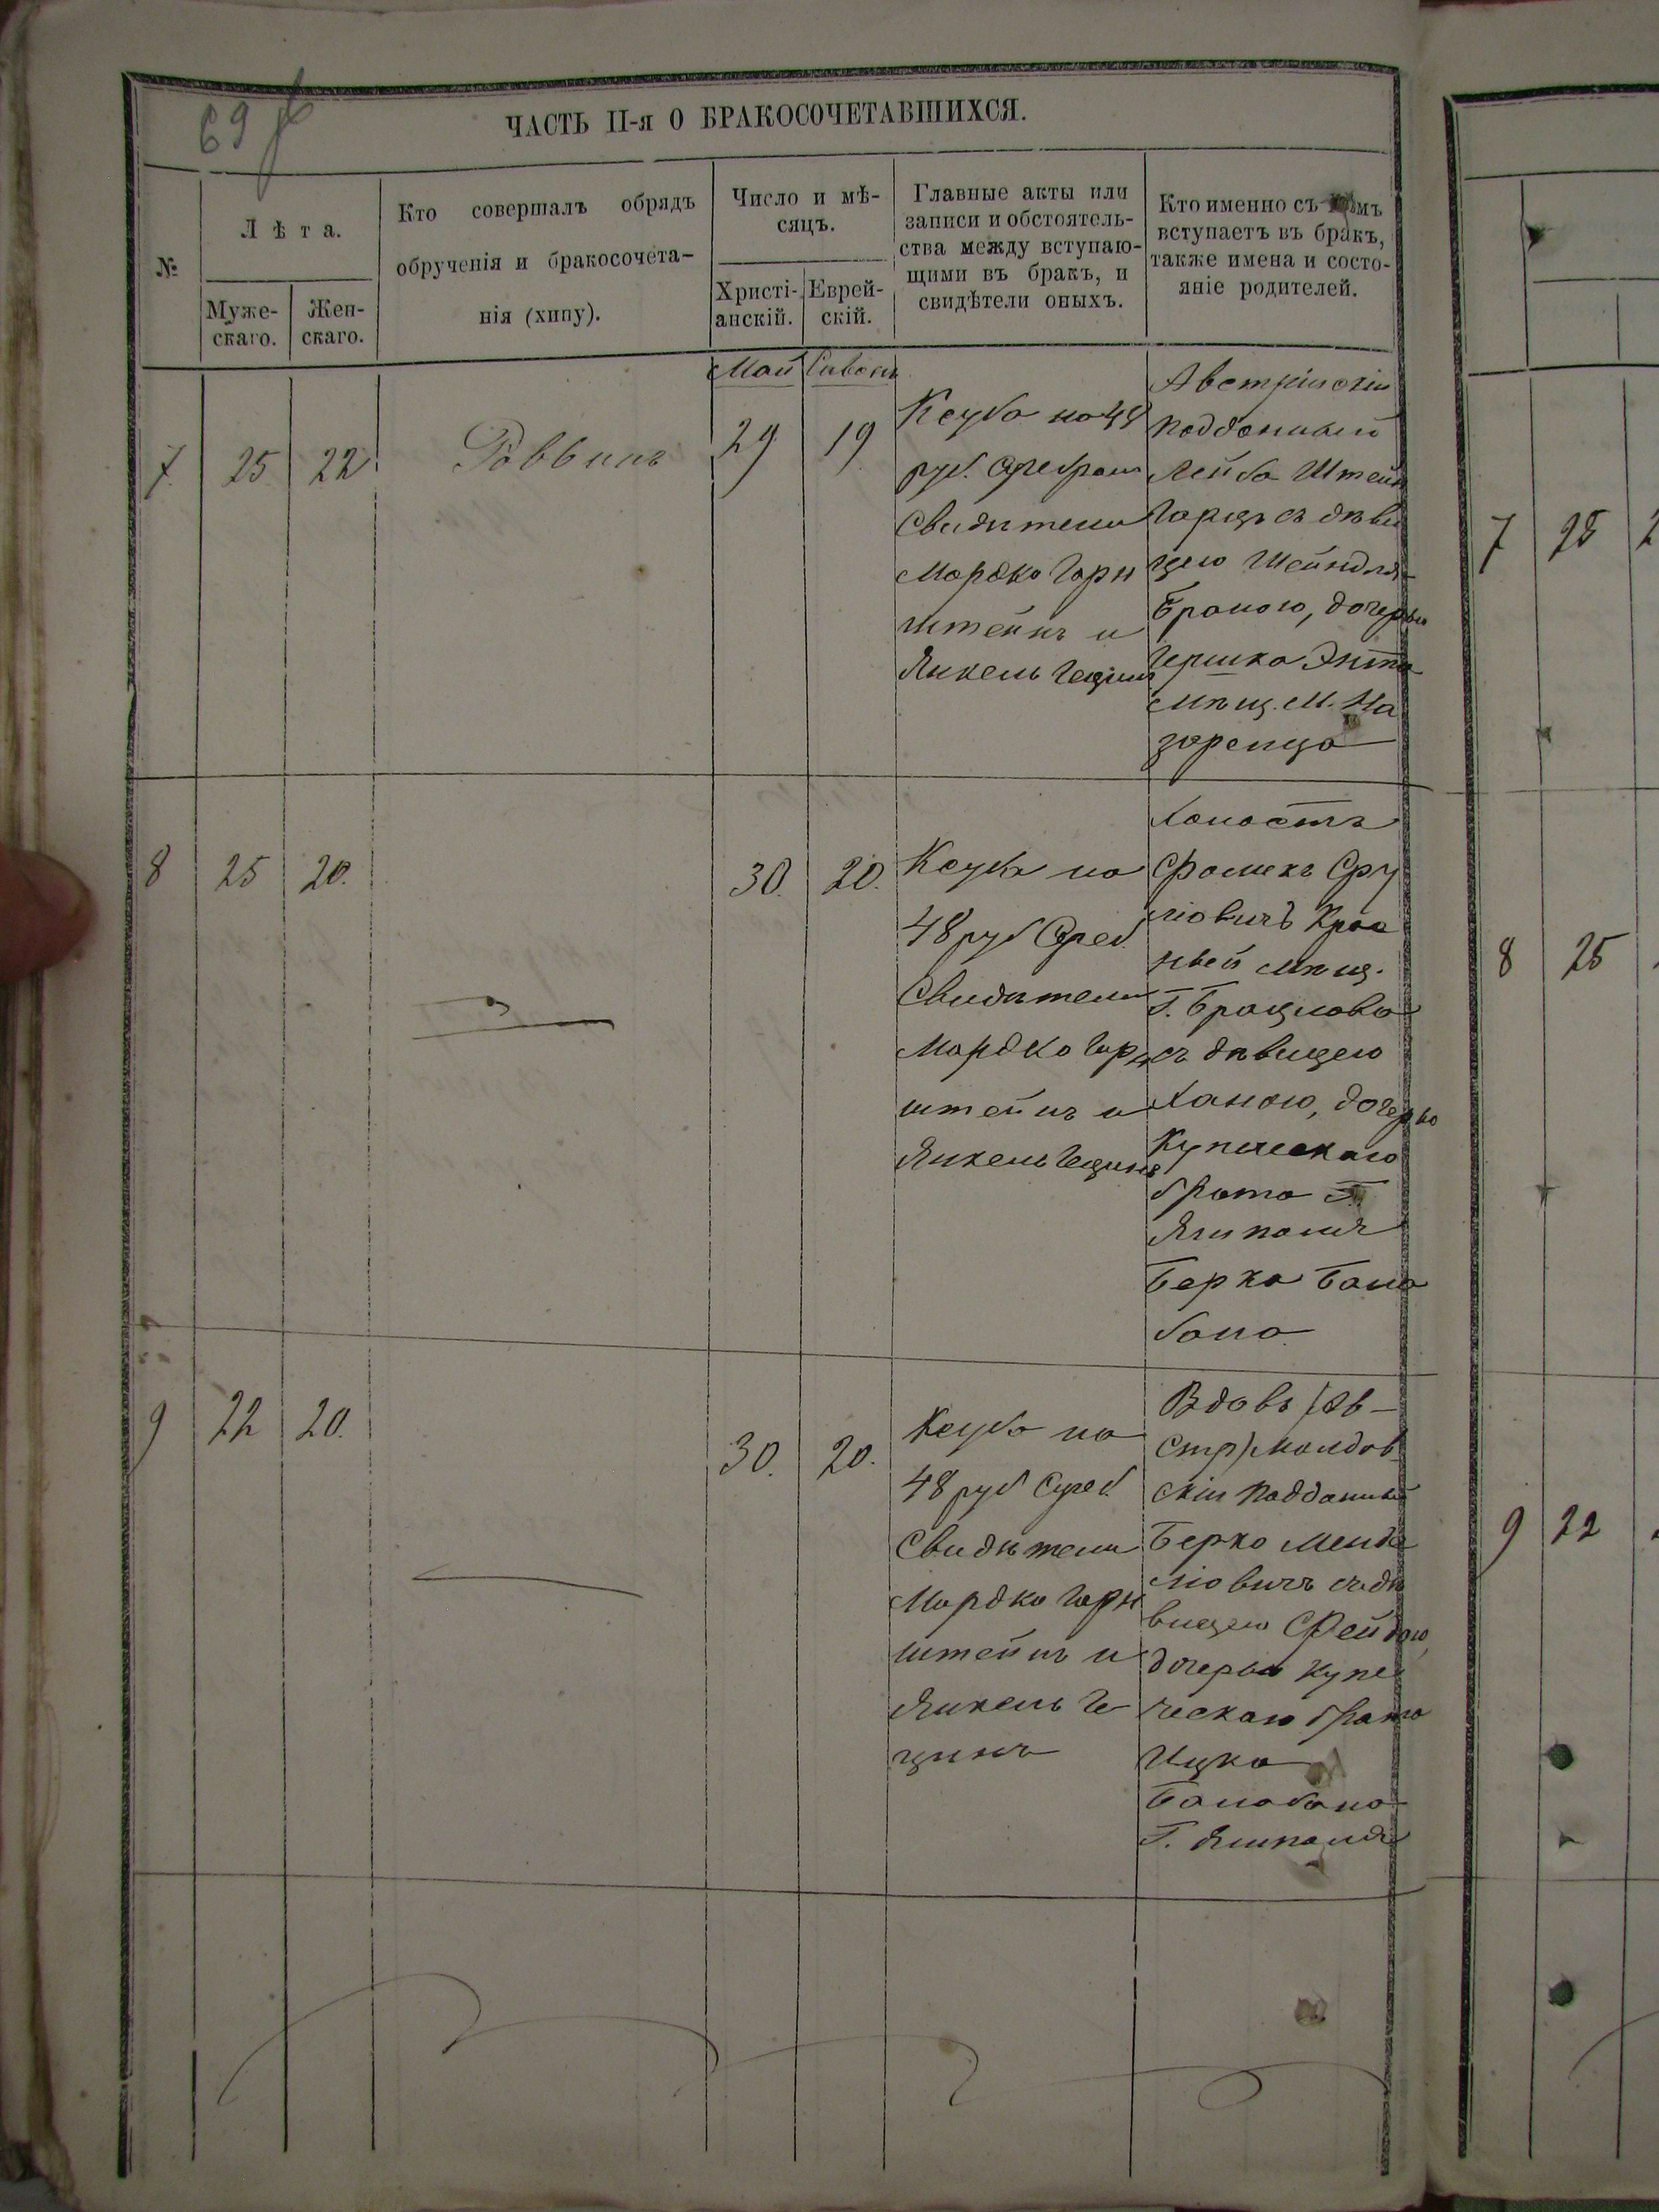 69
ЧАСТЬ II-я О БРАКОСОЧЕТАВШИХСЯ.
№
Лѣта.
Муже-
скаго.
Жен-
скаго.
Кто совершалъ обрядъ
обрученія и бракосочета-
нія (хипу).
Число и мѣ-
сяцъ.
Христі-
анскій.
Еврей-
скій.
Главные акты или
записи и обстоятель-
ства между вступаю-
щими въ бракъ, и
свидѣтели оныхъ.
Кто именно съ кѣмъ
вступаетъ въ бракъ,
также имена и состо-
яніе родителей.
Май
Сивонъ
7.
25
22
Раввинъ
29
19
Ксуба на 48
руб. Сребром
Свидѣтели
Мордко Горн
штейнъ и
Янкель Гецинъ
Австрійскій
подданный
Лейба Штейн
гарцъ съ дѣви
цею Шейндля-
Браною, дочерью
Гершка
мѣщ. М. На
заренца
8
25
20.
30.
20.
Ксуба на
48 руб Среб.
Свидѣтели
Мордко Горн
штейнъ и
Янкель Гецинъ
Холостъ
Фроликъ Сру
ліовичъ Крас
ный мѣщ.
Г. Брацлова
съ дѣвицею
Ханою, дочерью
Купческаго
брата Г.
Ямполя
Берка Бала
бана
9
22
20.
30.
20.
Ксуба на
48 руб Сереб.
Свидѣтели
Мордко Горн
штейнъ и
Янкель Ге
цинъ
Вдовъ (Ав-
стр) Молдав
скій подданный
Берко Менде
ліовичъ съ дѣ
вицею Фейгою,
дочерью купе
ческаго брата
Ицка
Балабана
Г. Ямполя
7
25
8
25
9
22